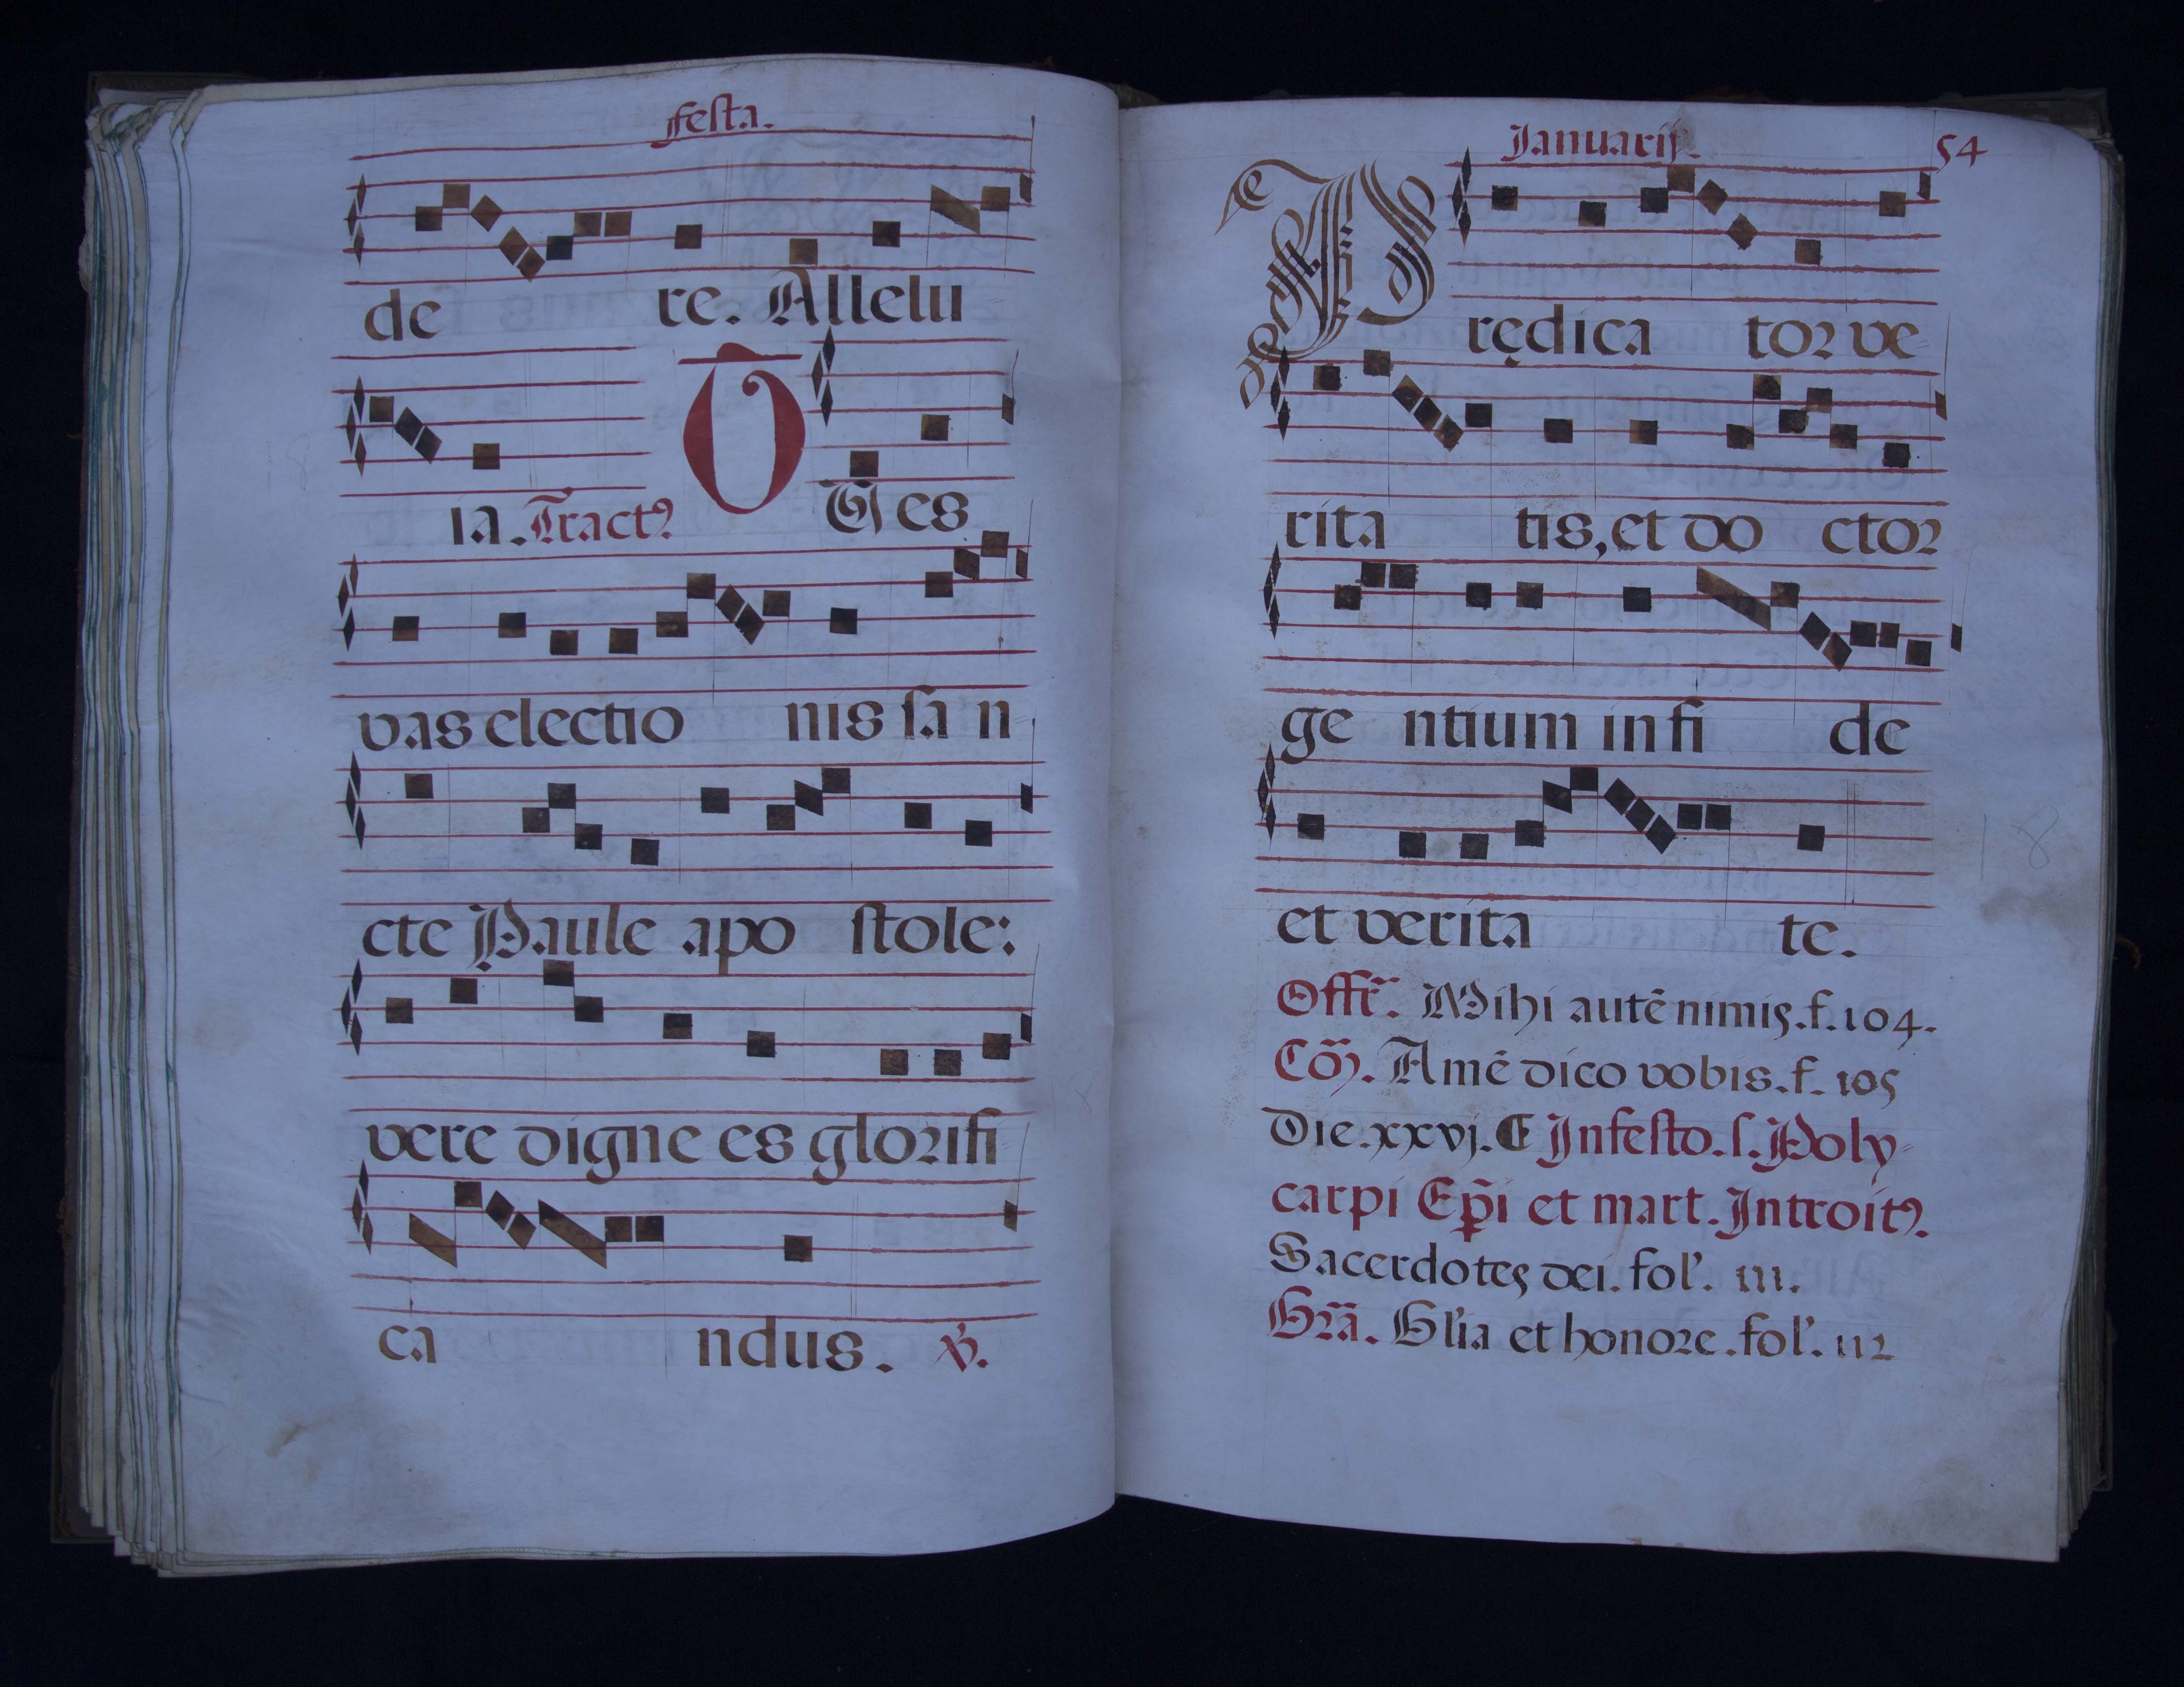 Festa.
de re. Allelu
ia. Tractꝰ
TU es
vas electio nis ſan
cte Paule apo ſtole:
vere digne es glorifi
candus. ℣.
Januarij. 54
Prędica tor ve
rita tis, et do ctor
ge ntium in fi de
et verita te.
Offr̃. Mihi autē nimis. f. 104.
Cõ. Amē dico vobis. f. 105
Die. xxvj. ¶ In feſto. ſ. Poly-
carpi Ep̃i et mart. Introitꝰ.
Sacerdotes dei. fol'. 111.
Gra᷈. Gl'ia et honore. fol'. 112
18